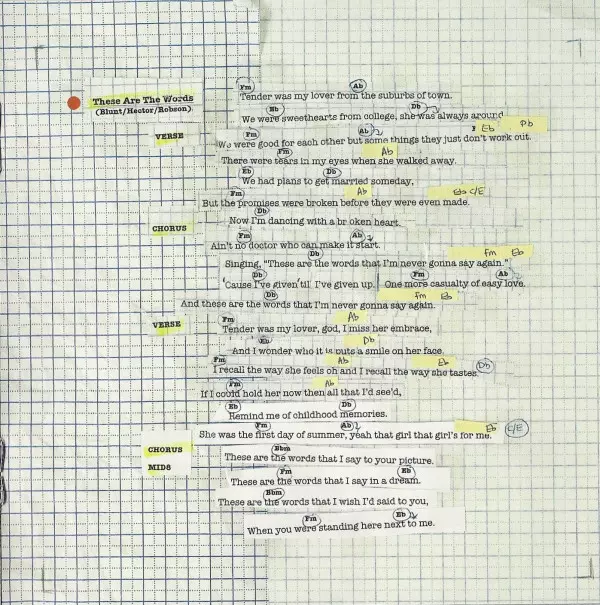 Fm Ab
These Are The Words Tender was my lover from the suburbs of town.
(Blunt/Hector/Robson) Eb Db
We were sweethearts from college, she was always around
VERSE Fm Ab Eb Db
We were good for each other but some things they just don't work out.
Fm Ab
There were tears in my eyes when she walked away.
Eb Db
We had plans to get married someday,
Fm Ab Eb C/E
But the promises were broken before they were even made.
Db
Now I'm dancing with a br oken heart.
CHORUS Fm Ab
Ain't no doctor who can make it start.
Db Fm Eb
Singing, "These are the words that I'm never gonna say again."
Db Fm Ab
'Cause I've given 'til I've given up. One more casualty of easy love.
Db Fm Eb
And these are the words that I'm never gonna say again.
VERSE Fm Ab
Tender was my lover, god, I miss her embrace,
Eb Db
And I wonder who it is puts a smile on her face.
Fm Ab Eb Db
I recall the way she feels oh and I recall the way she tastes
Fm Ab
If I could hold her now then all that I'd see'd,
Eb Db
Remind me of childhood memories.
Fm Ab Eb C/E
She was the first day of summer, yeah that girl that girl's for me.
CHORUS Bbm
These are the words that I say to your picture.
MID8 Fm Eb
These are the words that I say in a dream.
Bbm
These are the words that I wish I'd said to you,
Fm Eb
When you were standing here next to me.